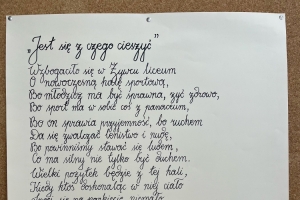 „Jest się z czego cieszyć”
Wzbogaciło się w Żywcu liceum
O nowoczesną halę sportową,
Bo młodzież ma być sprawna, żyć zdrowo,
Bo sport ma w sobie coś z panaceum,
Bo on sprawia przyjemność, bo ruchem
Da się zwalczać lenistwo i nudę,
Bo powinniśmy stawać się ludem,
Co ma silny nie tylko być duchem.
Wielki pożytek będzie z tej hali,
Kiedy ktoś doskonaląc w niej ciało